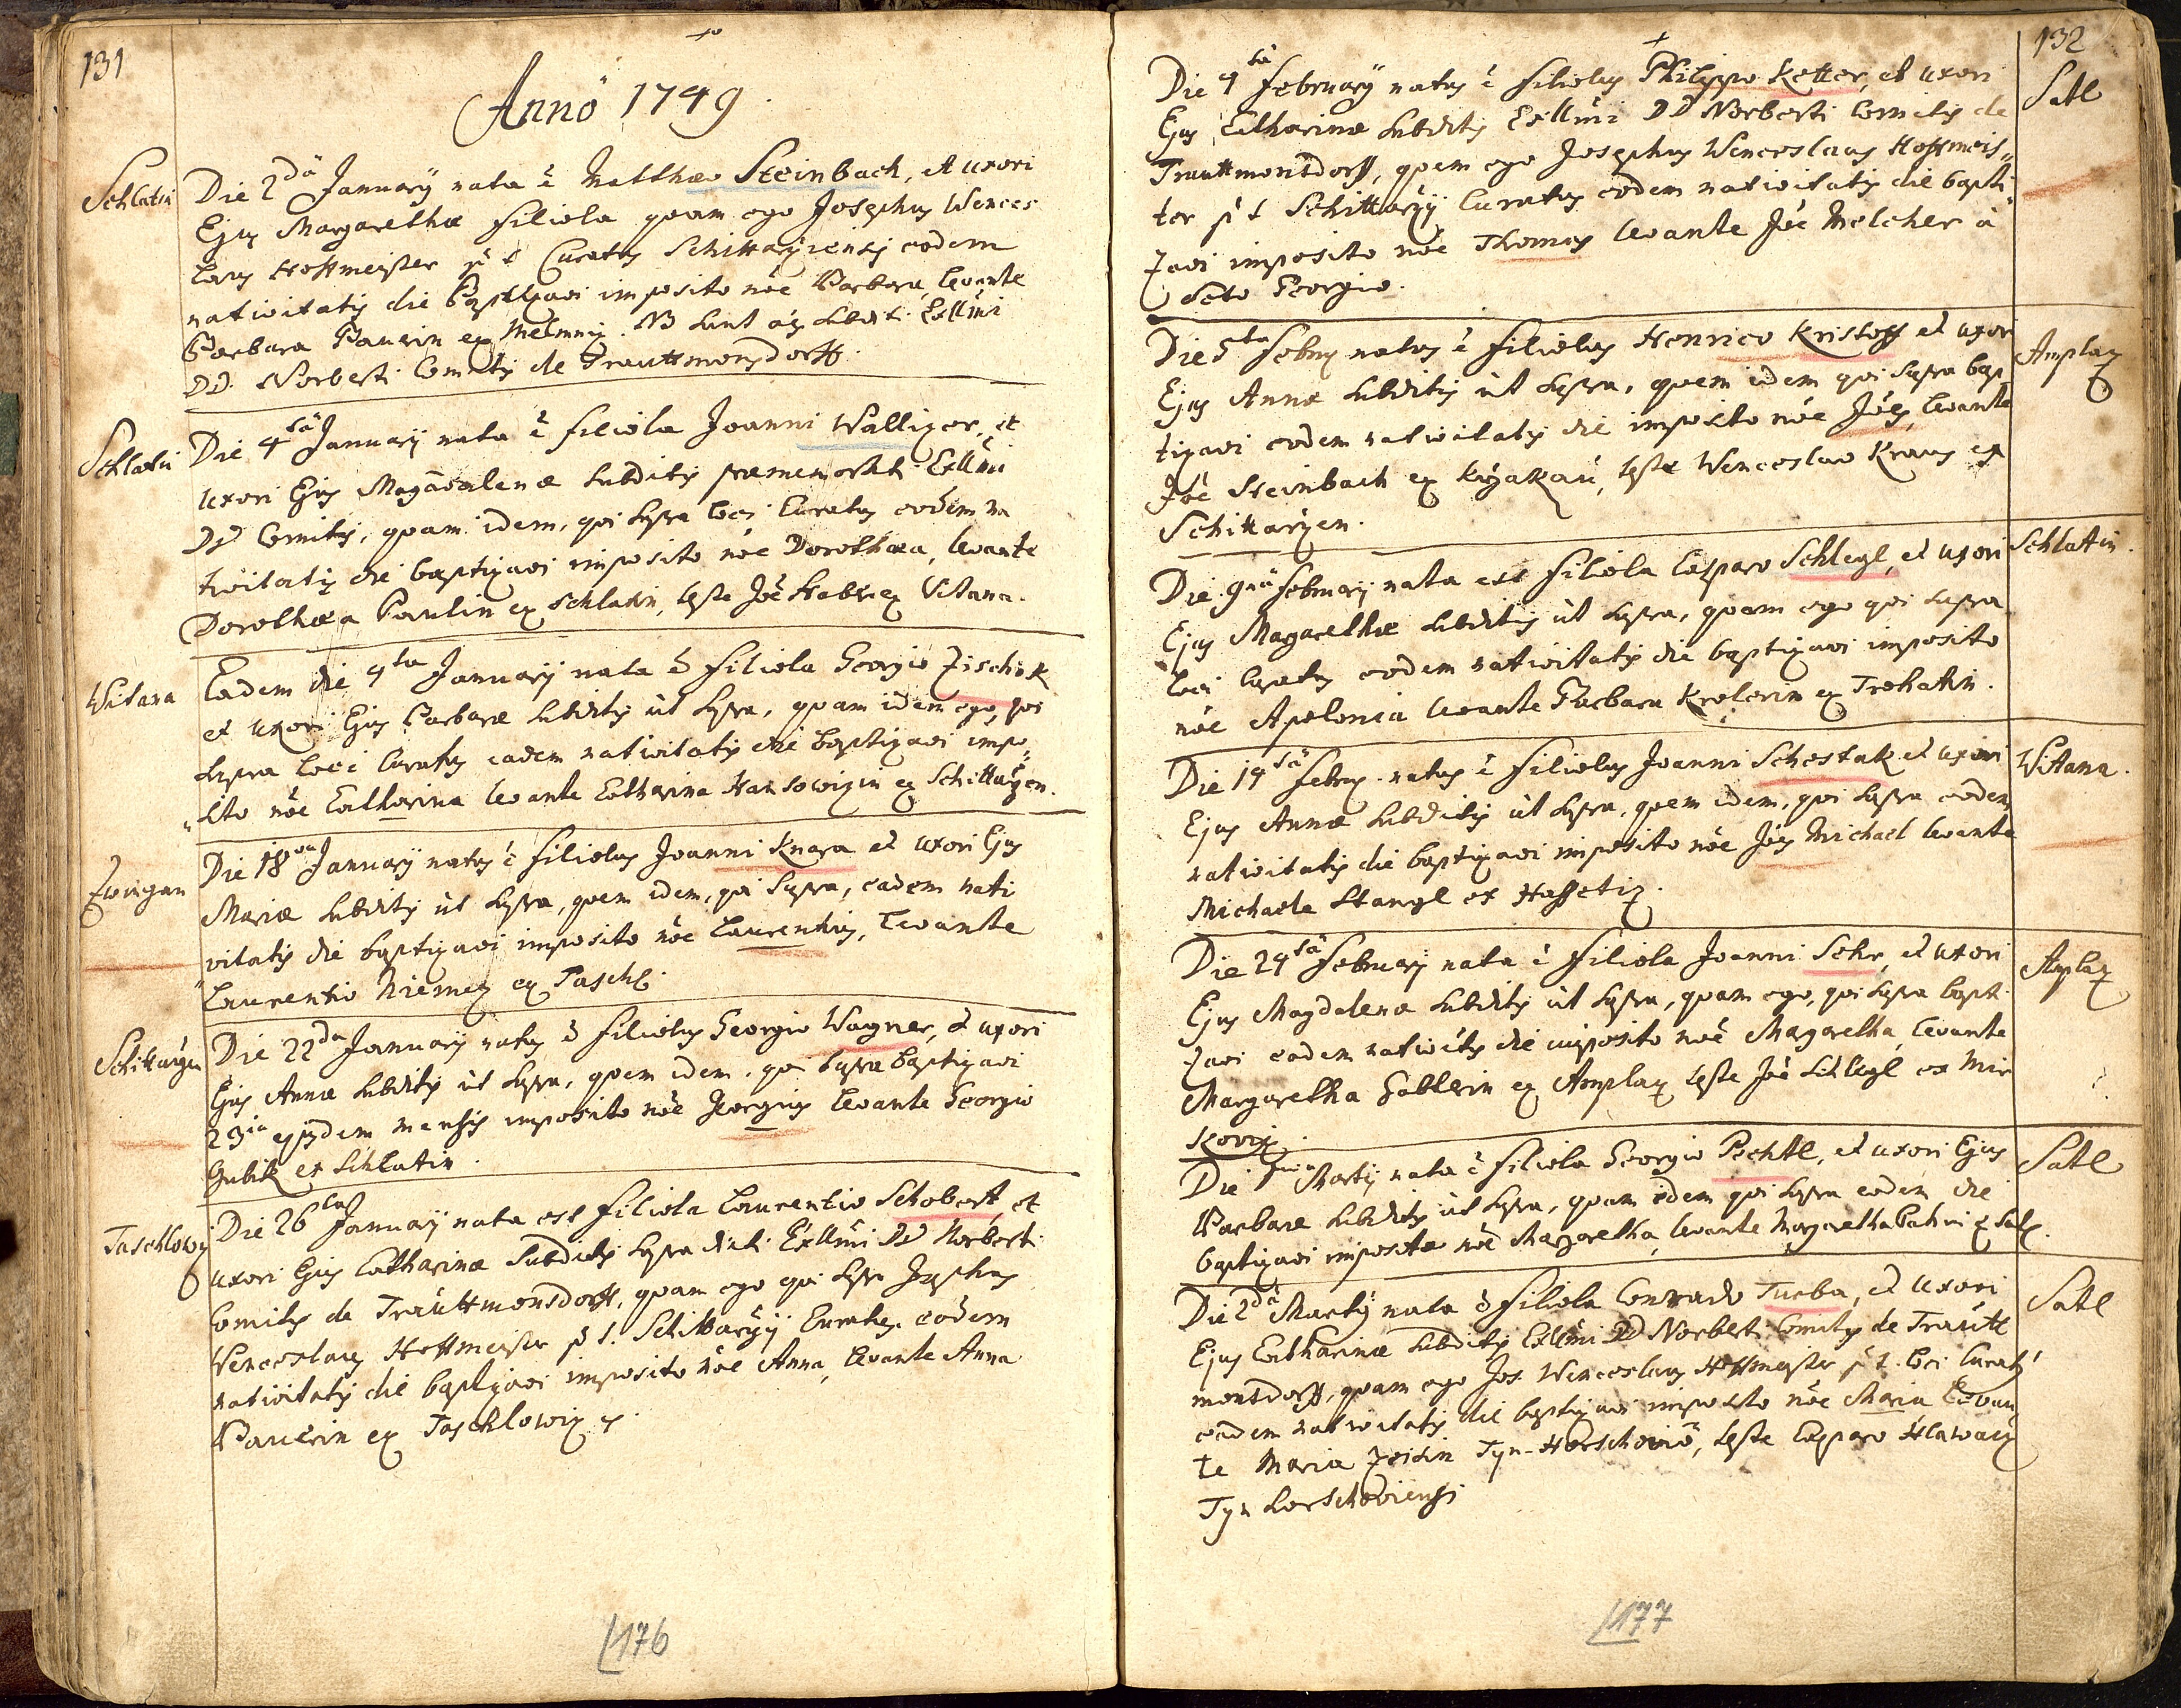 131
Anno 1749.
Schlatin
Die 2da Januarÿ nata ẽ Matthæo Steinbach, et uxori
Ejus Margarethæ filiola quam ego Josephus Wences
laus Hoffmeister p t Curatus Schittarziensis eodem
nativitatis die Baptizavi imposito nõe Barbara, levante
Barbara Paurin ex Melmniz. NB sunt oẽs subditi Exllmi
DD. Norberti Comitis de Trauttmonsdorff.
Schlatin
Die 4ta Januarÿ nata ẽ filiola Joanni Walliger, et
uxori Ejus Magdalenæ subditis præmemorati Exllmi
DD Comitis, quam idem, qui supra loci Curatus eodem na
tivitatis die baptizavi imposito nõe Dorothæa, levante
Dorothæa Paulin ex Schlatin, teste Joẽ Haber ex Witana.
Witana
Eadem die 4ta Januarÿ nata ẽ filiola Georgio Zischek
et uxori Ejus Barbaræ subditis ùt supra, quam idem ego, qui
supra loci Curatus eadem nativitatis die baptizavi impo„
„sito nõe Catharina levante Catharina Hansowizin ex Schittarzen.
Zwingau
Die 18va Januarÿ natus ẽ filiolus Joanni Knara et uxori Ejus
Mariæ subditis ùt supra, quem idem, qui supra, eadem nati
vitatis die baptizavi imposito nõe Laurentius, levante
Laurentio Niemez ex Taschl.
Schittarzen
Die 22da Januarÿ natus ẽ filiolus Georgio Wagner, et uxori
Ejus Annæ subditis ùt supra, quem idem, qui supra baptizavi
23ia ejusdem mensis imposito nõe Georgius levante Georgio
Gubik ex Schlatin.
Taschlowiz
Die 26ta Januarÿ nata est filiola Laurentio Schobert, et
uxori Ejus Catharinæ Subditis supra dicti Exllmi DD Norberti
Comitis de Traùttmonsdorff, quam ego qui supra Josephus
Wenceslaus Hoffmeister p t. Schittarzÿ Curatus. eodem
nativitatis die baptizavi imposito nõe Anna, levante Anna
Paurin ex Taschlowiz
176
132
Satl
Die 4ta Februarÿ natus ẽ filiolus Philippo Ketter, et uxori
Ejus Catharinæ subditis Exllmi DD Norberti Comitis de
Trauttmontsdorff, quem ego Josephus Wenceslaus Hoffmeis„
ter p t Schittarzÿ Curatus eodem nativitatis die bapti
zavi imposito nõe Thomas levante Joẽ Melcher à
Scto Georgio.
Amplaz
Die 5ta Febry natus ẽ filiolus Henrico Kristoff et uxori
Ejus Annæ subditis ùt supra, quem idem qui supra bap
tizavi eodem nativitatis die imposito nõe Joẽs, levante
Joẽ Steinbach ex Krzakau, teste Wenceslao Kraus ex
Schittarzen.
Schlatin.
Die 9na Februarÿ nata est filiola Casparo Schlegl, et uxori
Ejus Magarethæ subditis ùt supra, quam ego qui supra
loci Curatus eodem nativitatis die baptizavi imposito
nõe Apolonia levante Barbara Krolerin ex Trohatin.
Witana.
Die 14ta Febry. natus ẽ filiolus Joanni Schestak et uxori
Ejus Annæ subditis ùt supra, quem idem, qui supra eodem
nativitatis die baptizavi imposito nõe Joẽs Michael levante
Michaele Stangl ex Hossetiz.
Amplaz
Die 24ta Februarÿ nata ẽ filiola Joanni Sehr, et uxori
Ejus Magdalenæ subditis ùt supra, quam ego, qui supra bapti
zavi eadem nativitis die imposito nõe Magaretha, levante
Margaretha Gablerin ex Amplaz teste Joẽ Schlegl ex Mir
kowiz.
Satl
Die 1ma Martÿ nata ẽ filiola Georgio Pechtl, et uxori Ejus
Barbaræ subditis ùt supra, quam idem qui supra eodem die
baptizavi imposito nõe Magaretha, levante Margaretha ex Satl.
Satl
Die 2da Martÿ nata ẽ filiola Conrado Turba, et uxori
Ejus Catharinæ subditis Exllmi DD Norberti Comitis de Traùtt
montsdorff, quam ego Jos. Wenceslaus Hoffmeister p t. loci Curatus
eadem nativitatis die baptizavi imposito nõe Maria levan
te Maria Zeisin Tyn-Horschovie, teste Casparo Hlawacz
Tyn horschoviensi
177